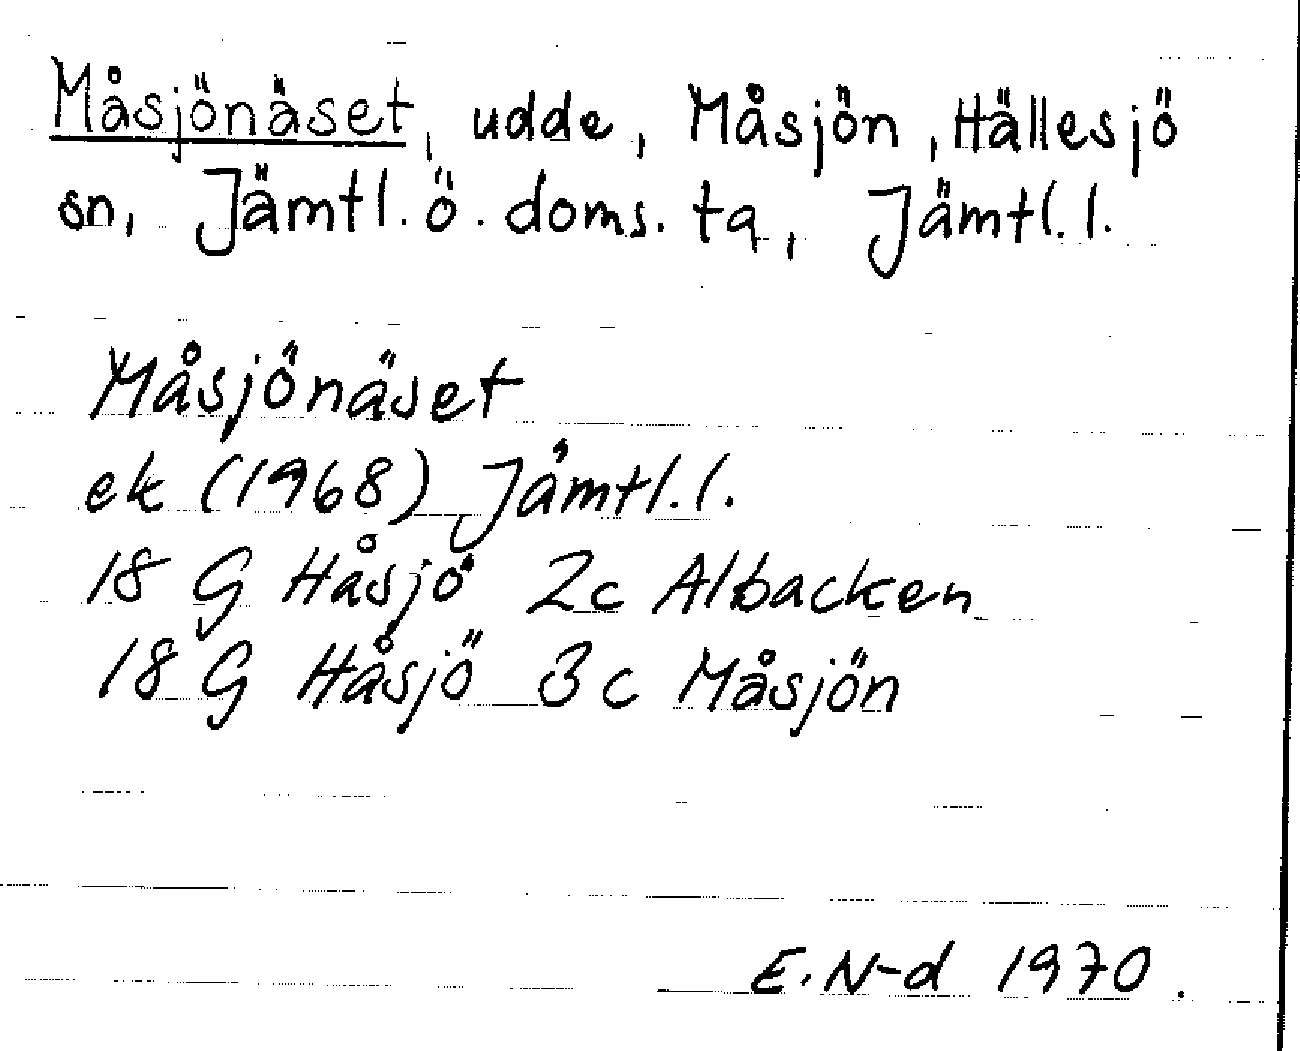 Måsjönäset, udde, Måsjön, Hällesjö
sn, Jämtl. ö. doms. tg, Jämtl. l.
Måsjönäset
ek (1968) Jämtl. l.
18 G Håsjö 2c Albacken
18 G Håsjö 3c Måsjön
E. N-d 1970.